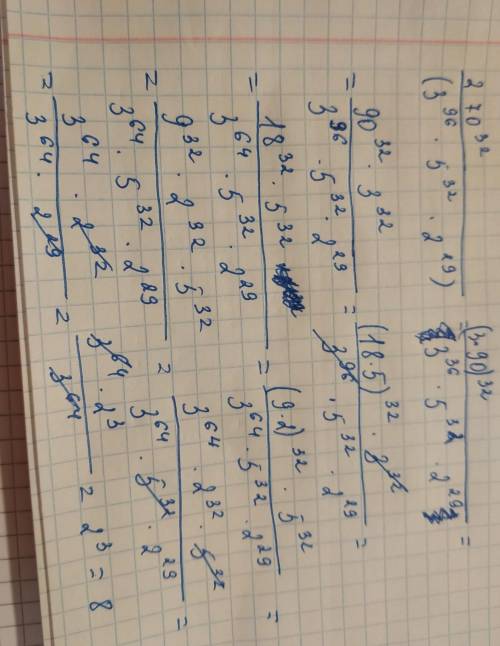 270^32 / (3^96 · 5^32 · 2^29) = (3·90)^32 / 3^96 · 5^32 · 2^29 =
= 90^32 · 3^32 / 3^96 · 5^32 · 2^29 = (18·5)^32 · 3^32 / 3^96 · 5^32 · 2^29 =
= 18^32 · 5^32 / 3^64 · 5^32 · 2^29 = (9·2)^32 · 5^32 / 3^64 · 5^32 · 2^29 =
= 9^32 · 2^32 · 5^32 / 3^64 · 5^32 · 2^29 = 3^64 · 2^32 · 5^32 / 3^64 · 5^32 · 2^29 =
= 3^64 · 2^32 / 3^64 · 2^29 = 3^64 · 2^3 / 3^64 = 2^3 = 8